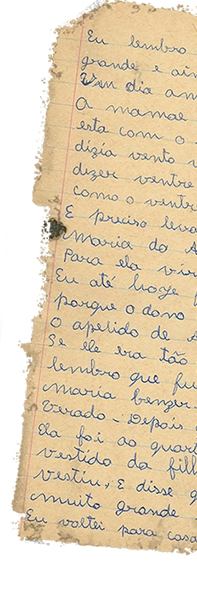 Eu lembro
grande e ain
Um dia am
A mamãe
esta com o
dizia vento v
dizer ventre
como o ventr
E preciso leva
Maria do A
Para ela vir
Eu até hoje f
porque o dono
O apelido de
Se elle era tão
lembro que fu
maria benzer
Virado - Depois
Ela foi ao quart
vestido da fill
vestiu, E disse q
muito grande
Eu voltei para casa